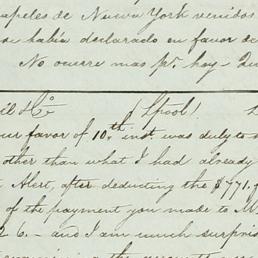 apeles de Nueva York venidos
se había declarado en favor de
No ocurre mas pr. hoy -
(Lpool)
our favor of 10th inst. was duly to
other than what I had already
Alert, after deducting the $771.
of the payment you made to M
26 - and I am much surpris